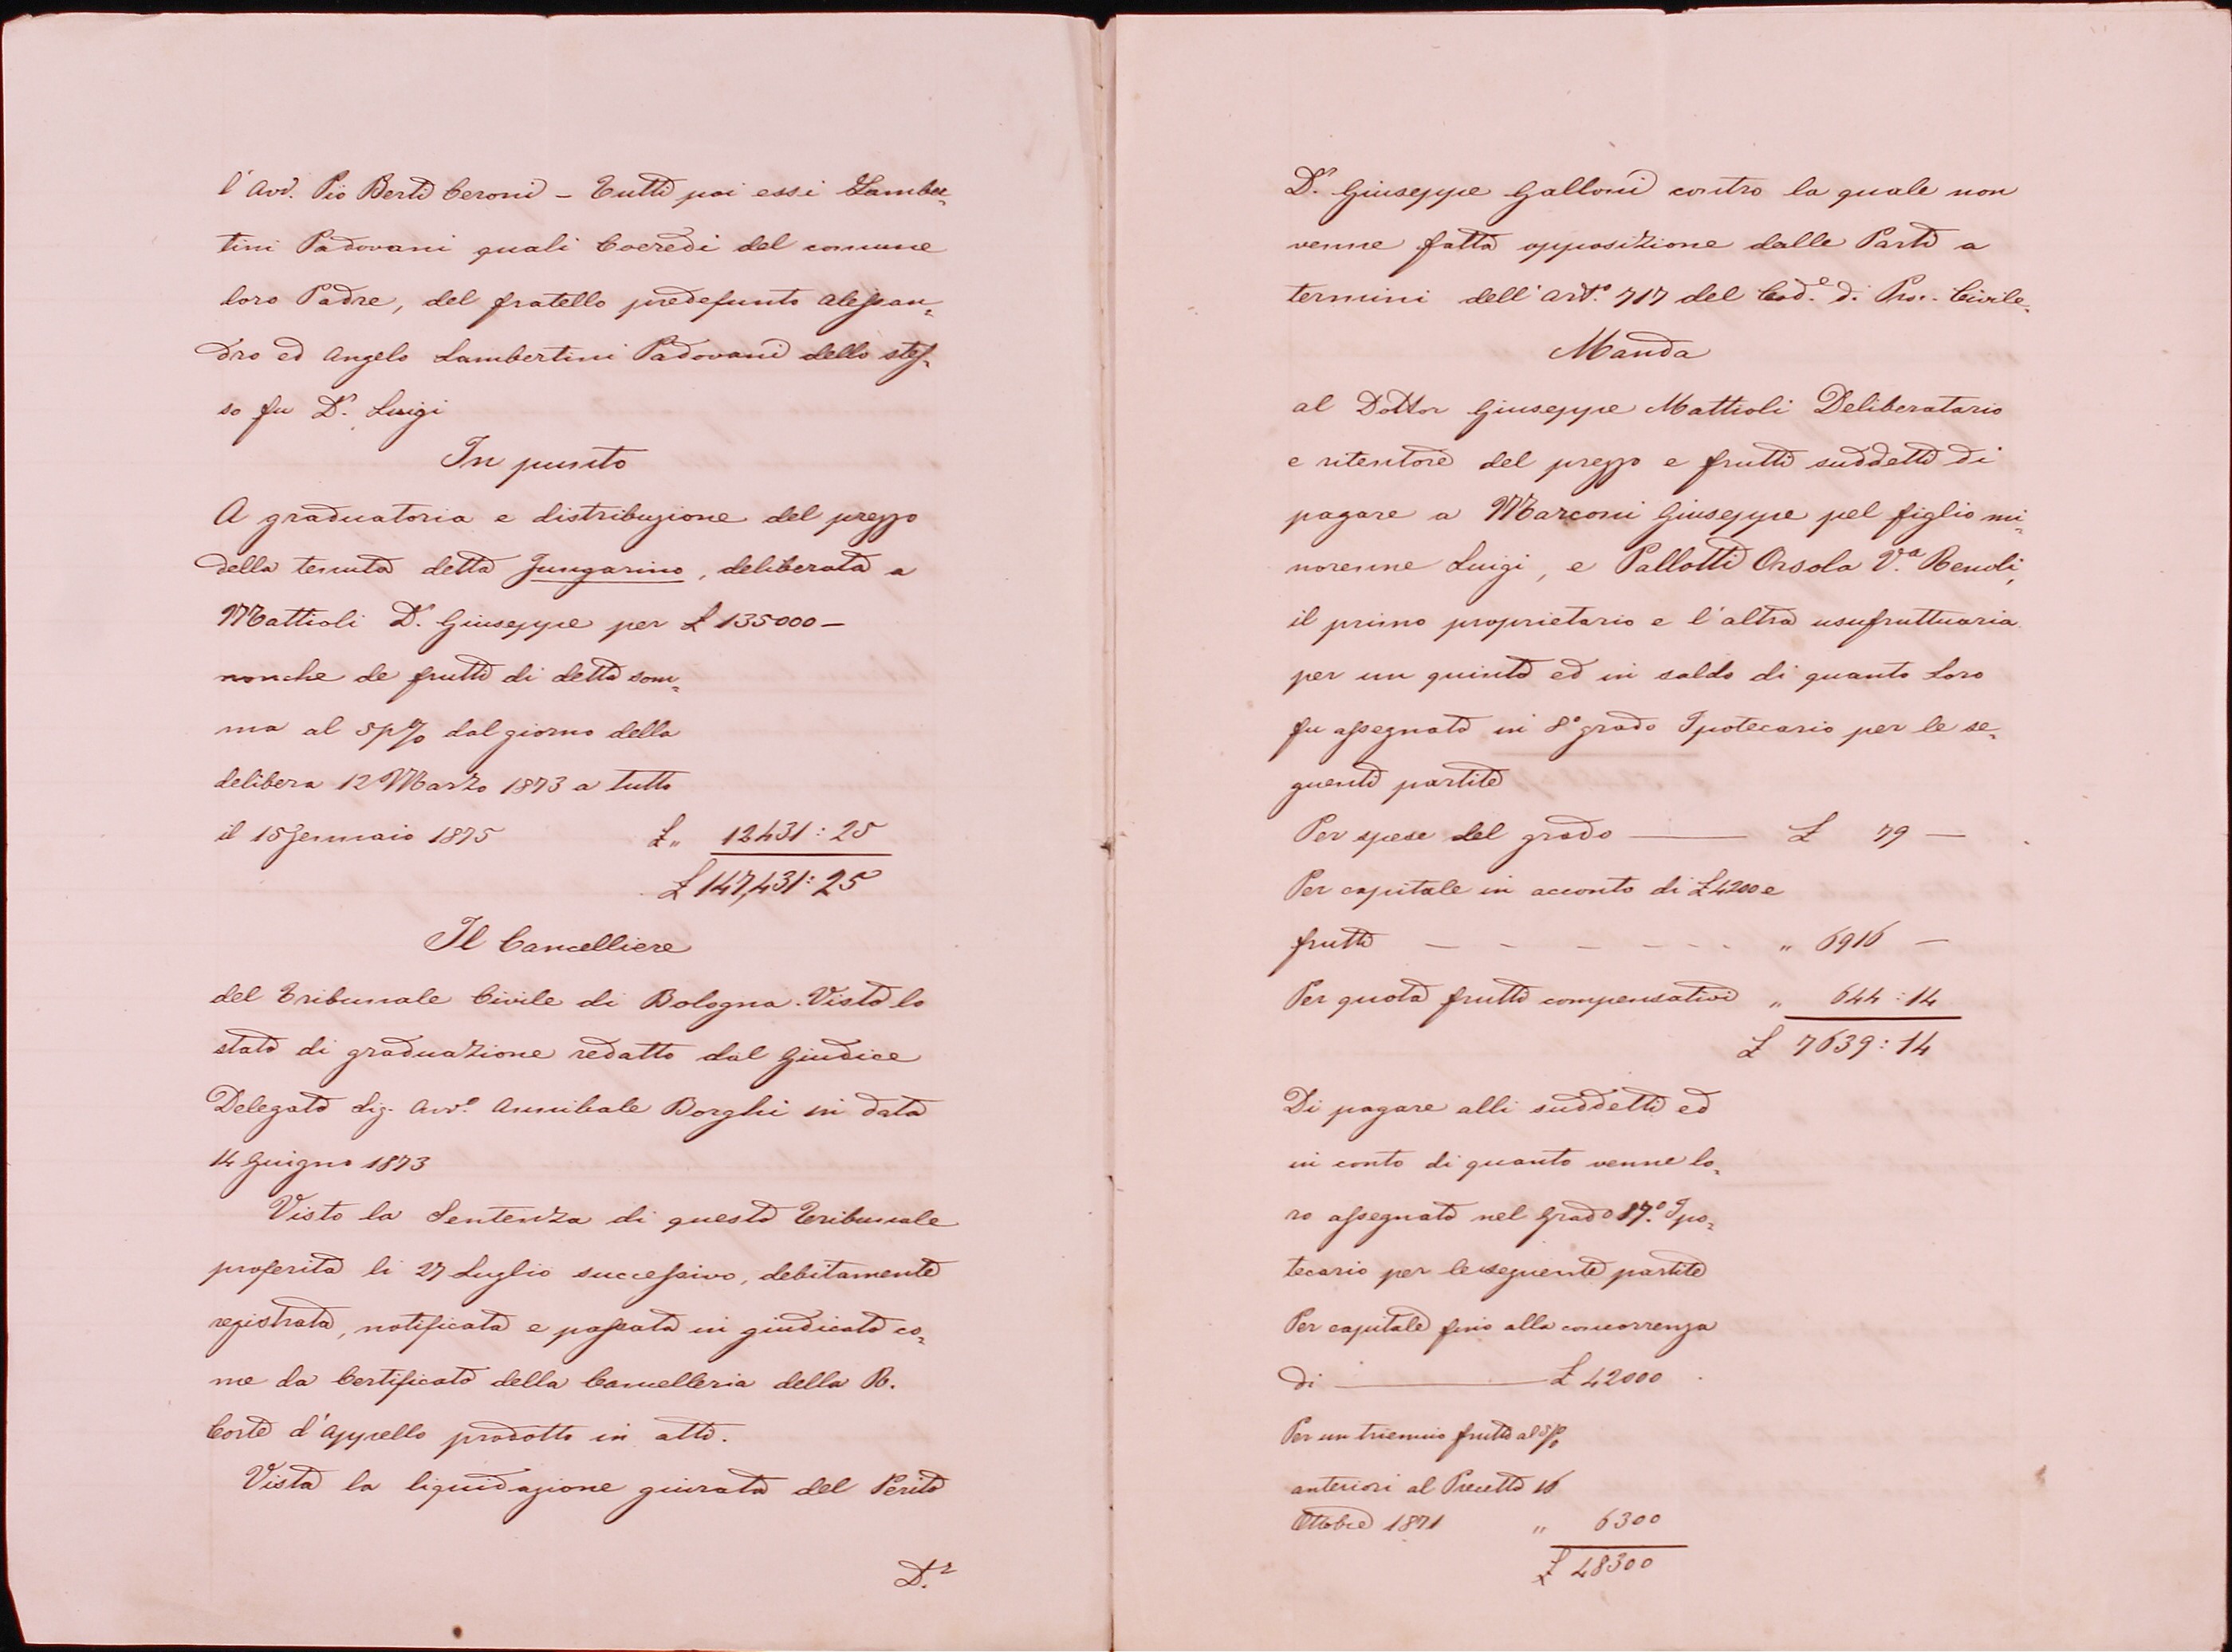 l'Avv. Pio Berti Ceroni – Tutti poi essi Lamber=
tini Padovani quali Coeredi del comune
loro Padre, del fratello predefunto Alessan=
dro ed Angelo Lambertini Padovani dello stes=
so fu D.r Luigi
In punto
A graduatoria e distribuzione del prezzo
della tenuta detta Jungarino, deliberata a
Mattioli D.r Giuseppe per £ 135000 –
nonche de frutti di detta som=
ma al 5 p% dal giorno della
delibera 12 Marzo 1873 a tutto
il 15 Jennaio 1875 £ „ 12431 : 25
£ 147,431 : 25
Il Cancelliere
del Tribunale Civile di Bologna. Visto lo
stato di graduazione redatto dal Giudice
Delegato Sig. Avv.o Annibale Borghi in data
14 Giugno 1873
Visto la Sentenza di questo Tribunale
proferita li 27 Luglio successivo, debitamente
registrata, notificata e passata in giudicato co=
me da Certificato della Cancelleria della R.
Corte d'Appello prodotto in atti.
Vista la liquidazione giurata del Perito
D.r
D.r Giuseppe Galloni contro la quale non
venne fatta opposizione dalle Parti a
termini dell'Art.o 717 del Cod.e di Proc. Civile.
Manda
al Dottor Giuseppe Mattioli Deliberatario
e ritentore del prezzo e frutti suddetti di
pagare a Marconi Giuseppe pel figlio mi=
norenne Luigi, e Pallotti Orsola V.a Renoli,
il primo proprietario e l'altra usufruttuaria
per un quinto ed in saldo di quanto loro
fu assegnato in 8° grado Ipotecario per le se=
guenti partite
Per spese del grado — £ 79 —
Per capitale in acconto di £ 4200 e
frutti — – – – – - - - „ 6916 —
Per quota frutti compensativi „ 644 : 14
£ 7639 : 14
Di pagare alli suddetti ed
in conto di quanto venne lo=
ro assegnato nel Grado 17.o Ipo=
tecario per le seguenti partite
Per capitale fino alla concorrenza
di — £ 42000
Per un triennio frutti al 5 p%
anteriori al Precetto 16
Ottobre 1871 „ 6300
£ 48300